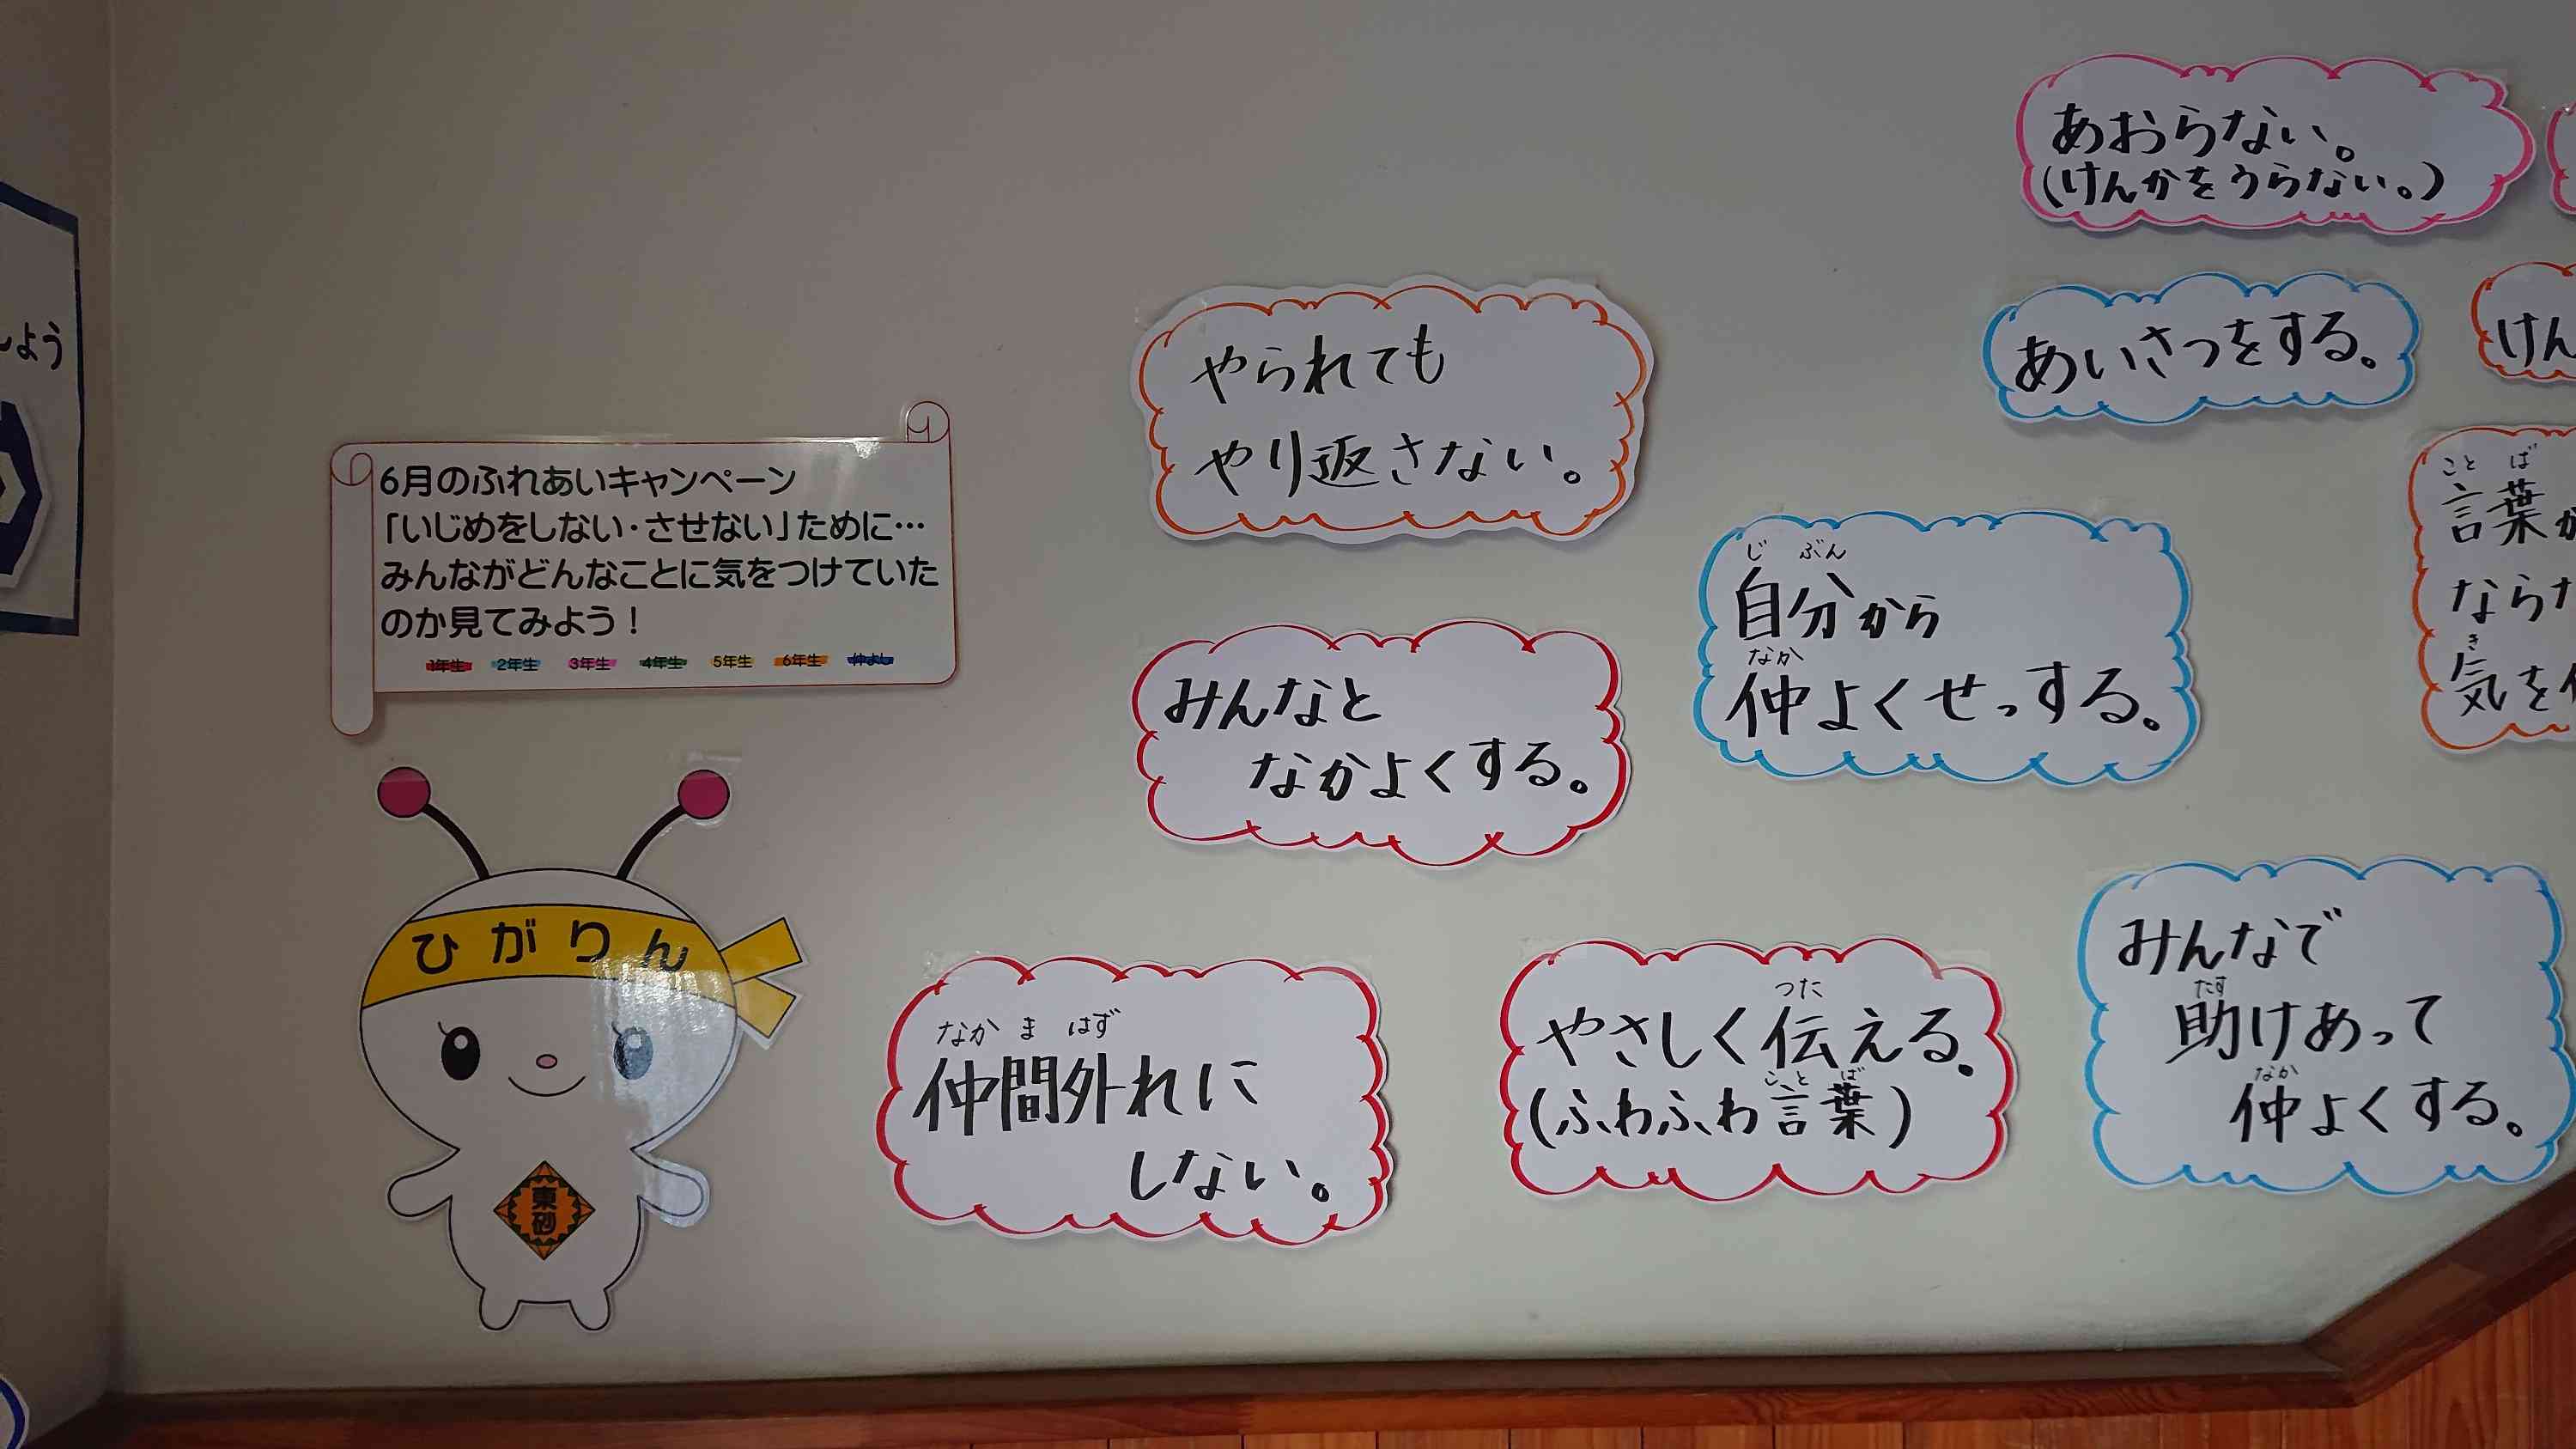 しよう
6月のふれあいキャンペーン
「いじめをしない・させない」ために…
みんながどんなことに気をつけていた
のか見てみよう！
1年生 2年生 3年生 4年生 5年生 6年生 仲よし
ひがりん
東
砂
やられても
やり返さない。
みんなと
なかよくする。
なか ま はず
仲間外れに
しない。
つた
やさしく伝える。
こと ば
(ふわふわ言葉)
じ ぶん
自分から
なか
仲よくせっする。
あおらない。
(けんかをうらない。)
あいさつをする。
みんなで
たす
助けあって
なか
仲よくする。
けん
こと ば
言葉が
なら
き
気を